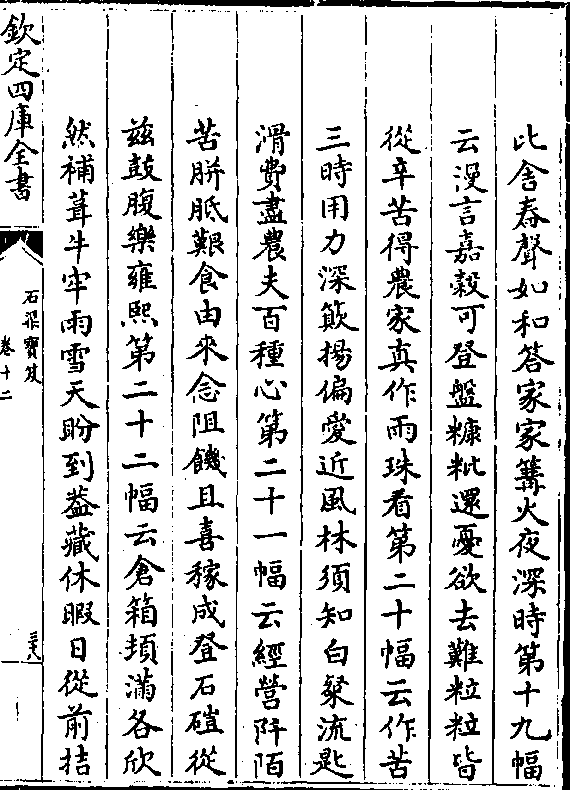 此舎舂聲如和答家家篝火夜深時第十九幅
云漫言嘉穀可登盤糠粃還憂欲去難粒粒皆
從辛苦得農家真作雨珠看第二十幅云作苦
三時用力深簸揚偏愛近風林須知白粲流匙
滑費盡農夫百種心第二十一幅云經營阡陌
苦胼胝艱食由來念阻饑且喜稼成登石磑從
兹鼓腹樂雍熙第二十二幅云倉箱頓滿各欣
然補葺牛牢雨雪天盼到葢藏休暇日從前拮
欽定四庫全書
石渠寶笈
卷十二
三十八